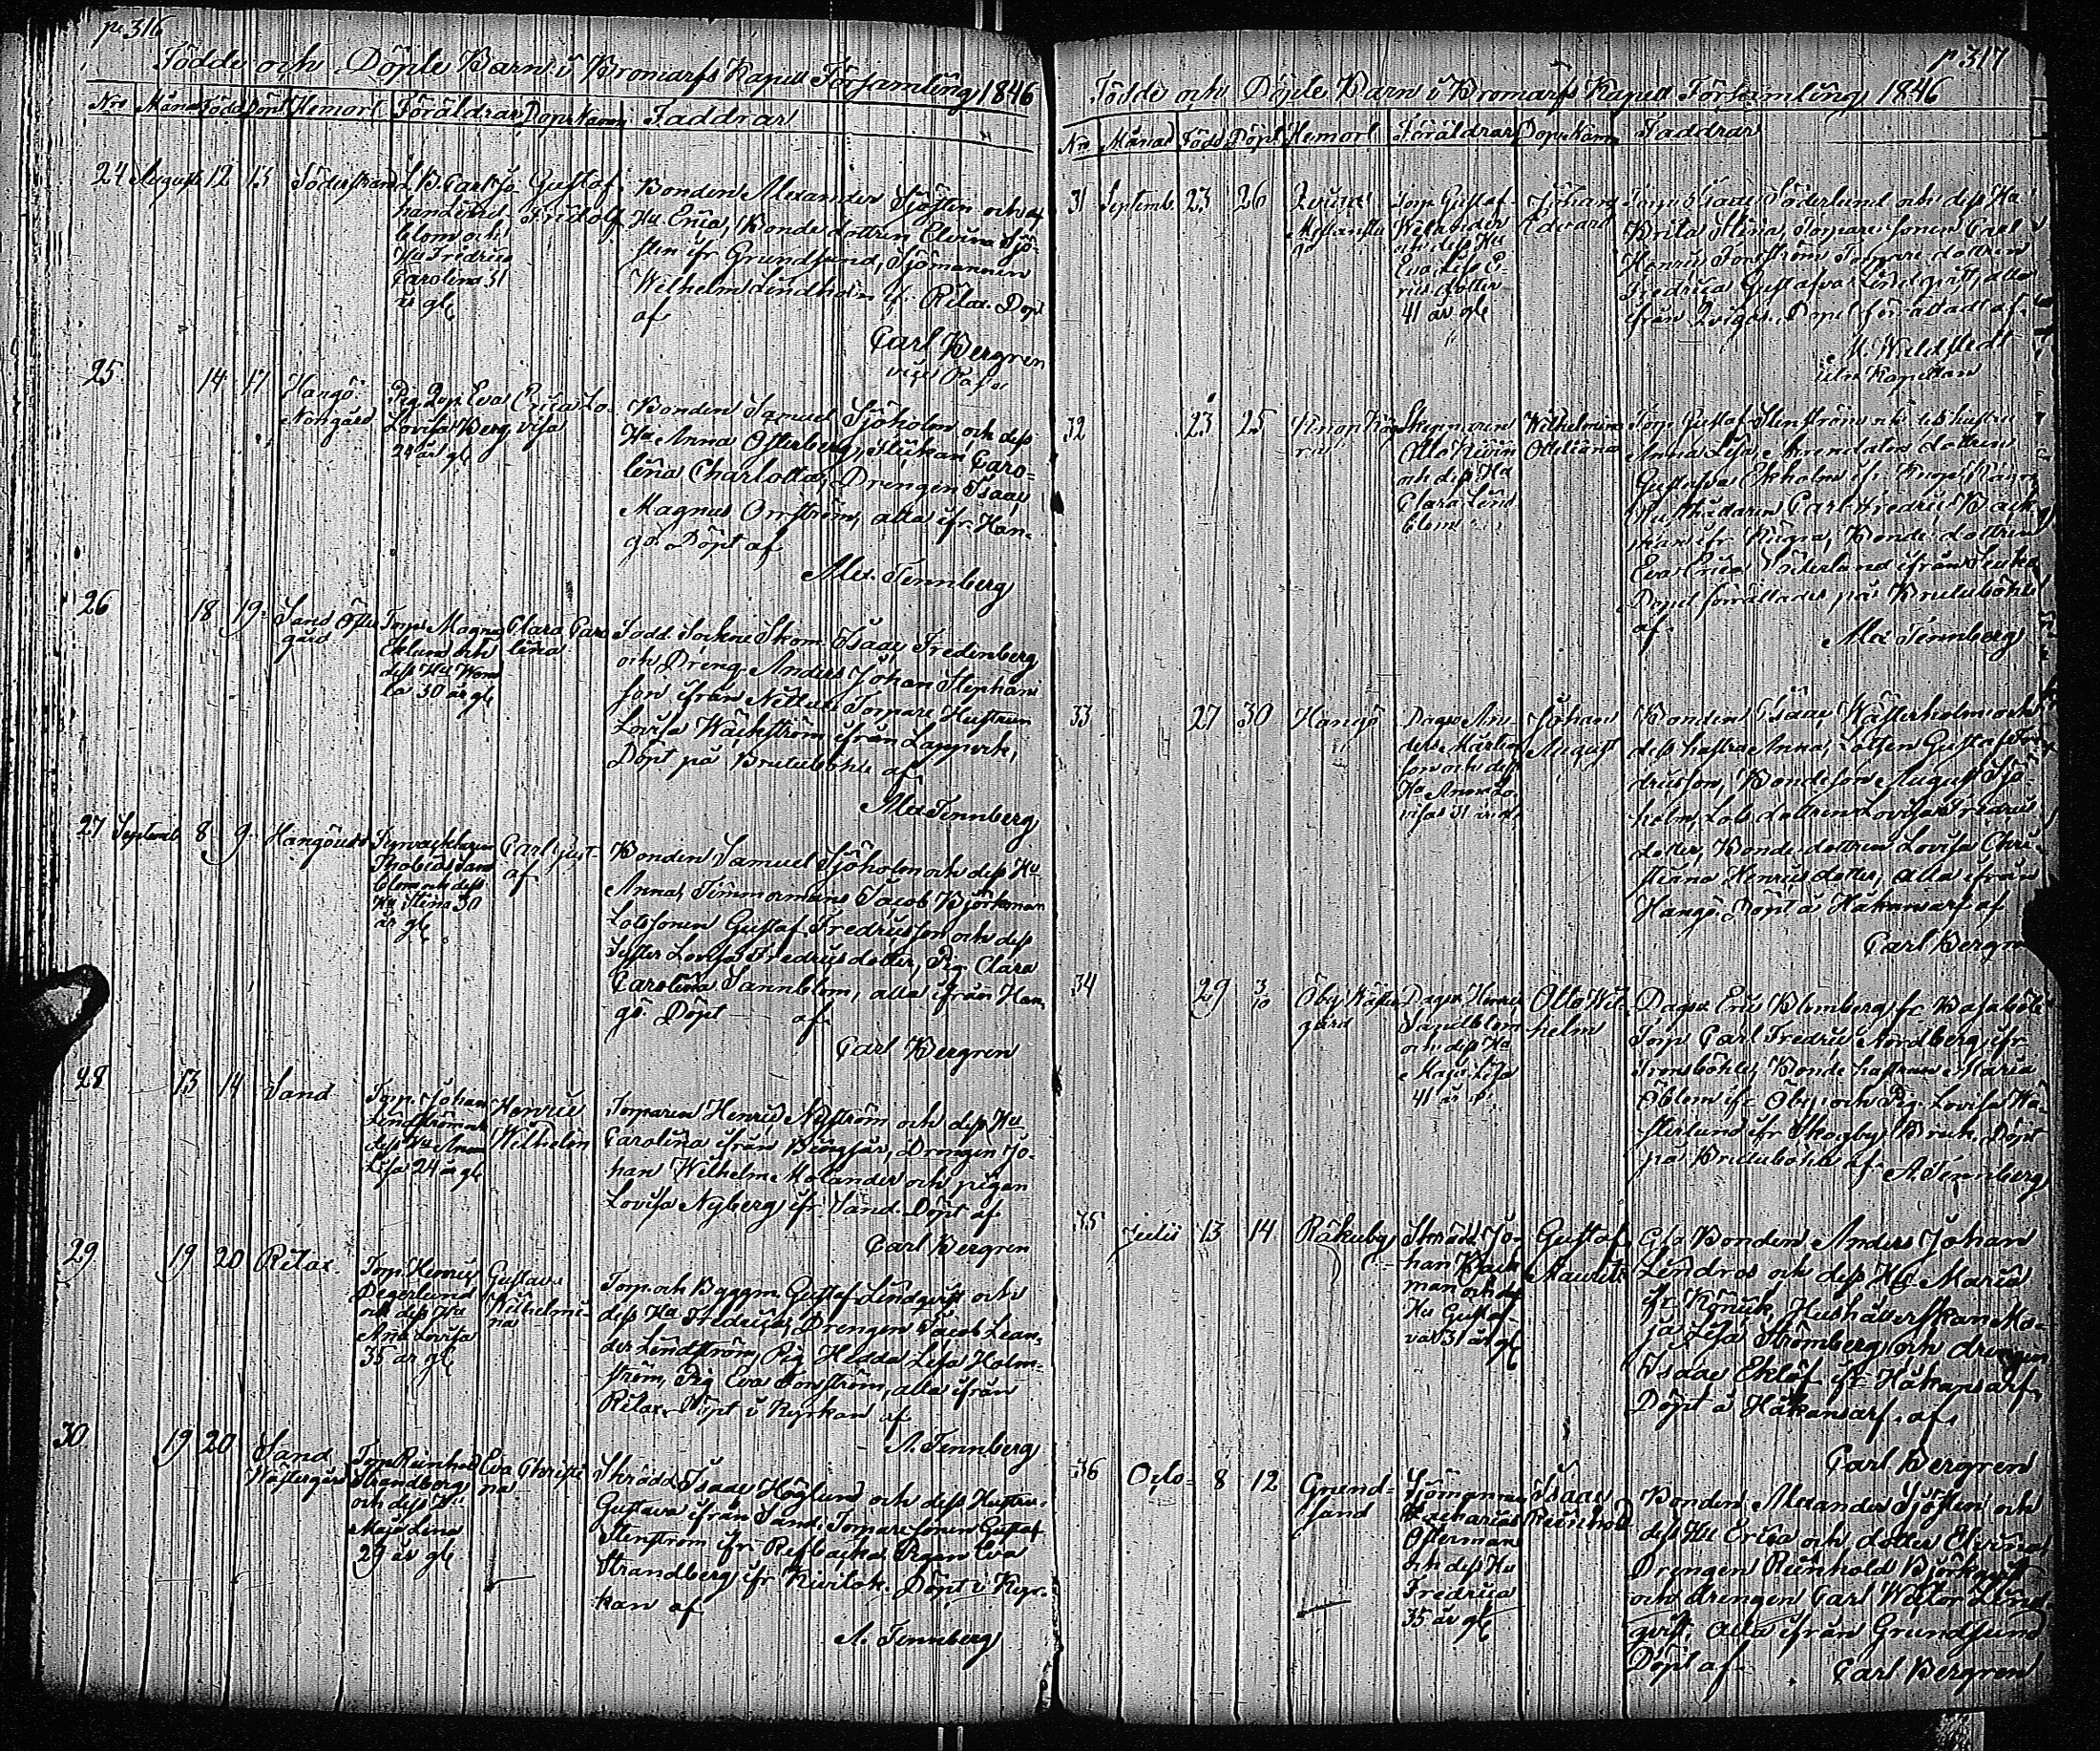 p. 316
Födde och Döpte Barn i Bromarfs Kapell Församling 1846
Nro Månad Född Döpt Hemort Föräldrar Dopnamn Faddrar
24 August 12 13 Söderstrand
L. B. Carl Jo-
han Lind-
blom och
Hu Fredrica
Carolina 31
år gl
Gustaf
Fridolf
Bonden Alexander Sjösten och
Hu Erica, Bonde dottren Elvina Sjö-
sten ifr Grundsund, Sjömannen
Wilhelm Lindholm if. Rilax. Döpt
af
Carl Bergren
vice Past
25 14 17 Hangö
Norrgård
Pig. Eva
Lovisa Berg
24 år gl
Erica Lo-
visa
Bonden Samuel Sjöholm och dess
Hu Anna Österberg, Flickan Caro-
lina Charlotta, Drengen Isaac
Magnus Orrström, alla ifr. Han-
gö. Döpt af
Alex. Tennberg
26 18 19 Sand Öster
gård
Torp. Magnus
Eklund och
dess Hu Wend
la 30 år gl
Clara Caro
lina
Sadd. Sockne Skom. Isaac Fredenberg
och Dreng Anders Johan Stephans
son ifrån Torpare Hustrun
Lovisa Wäckström ifrån Lappvik,
Döpt på Brutubohle af
Alex Tennberg
27 Septemb 8 9 Hangöudd
Fyrvacktaren
Thobias Sand
blom och dess
Hu Stina 30
år gl
Carl Gust
af
Bonden Samuel Sjöholm och dess Hu
Anna, Timmermans Jacob Björkman
Lotssonen Gustaf Fredricsson och dess
Syster Lovisa Fredricsdotter, Pig. Clara
Carolina Sannblom, alla ifrån Han-
gö. Döpt af
Carl Bergren
28 13 14 Sand
Torp. Johan
Lindström och
dess Hu Anna
Lisa 24 år gl
Henric
Wilhelm
Torparen Henric Nyström och dess Hu
Carolina ifrån Bengtsår, Drengen Jo-
han Wilhelm Molander och pigan
Lovisa Nyberg ifr. Sand. Döpt af
Carl Bergren
29 19 20 Rilax.
Torp. Henric
Degerlund
och dess Hu
Ana Lovisa
35 år gl
Gustava
Wilhelmi-
na
Torp. och Byggm. Gustaf Lindqvist och
dess Hu Fredrica, Drengen Jacob Lean-
der Lindström, Pig Hedda Lisa Holm-
ström, Pig Eva Tonström, alla ifrån
Rilax. Döpt i Kyrkan af
A. Tennberg
30 19 20 Sand
Westergård
Torp Reinhold
Strandberg
och dess Hu
Maja Lena
29 år gl
Eva Christi
na
Skrädd. Isaac Höglund och dess Hustru
Gustava ifrån Sand. Torpare sonen Gustaf
Stenström ifr. Refbacka Pigan Eva
Strandberg ifr Kivilok. Döpt i Kyr-
kan af
A. Tennberg
p. 317
Födde och Döpte Barn i Bromarfs Kapell Församling 1846
Nro Månad Född Döpt Hemort Föräldrar Dopnamn Faddrar
31 Septembr 23 26
Torp. Gustaf
Welander
och dess Hu
Eva Lisa E-
rics dotter
41 år gl
Johan
Edvard
Isaac Söderlund och dess Hu
Brita Stina, Torpare sonen Carl
Henric Tonström Torpare dottren
Fredrica Gustafva Lindqvist, alla
ifrån Qvigos. Döpt förrättadt af
Kapellan
32 23 25
Otto
och dess Hu
Clara Lind
blom
Wilhelmina
Ottiliana
Torp Gustaf Stenström och dess hustru
Anna Lisa, Arrendators dottren
Gustafva Ekholm ifr.
Carl Fredric Back
man ifr. Bonde dottren
Eva Erica Söderlund ifrån
Dopet förrättades på Brutubohle
af
Alex Tennberg
33 27 30 Hangö
Dagsv An-
ders Martin
son och dess
Hu Anna Lo-
visa 31 år gl
Johan
August
Bonden Isaac Wästerholm och
dess hustru Anna, Lotsen Gustaf Fre
dricsson, Bonde son August Sjö-
holm, Lots dottren Lovisa Fredrics
dotter, Bonde dottren Lovisa Chri-
stiana Henricsdotter, alla ifrån
Hangö. Döpt å Håkansarf af
Carl Bergren
34 29 3/10 Öby Wäster
gård
Dagsv. Henric
Sandblom
och dess Hu
Maja Lisa
41 år gl
Otto Wil-
helm
Dagsv. Eric Blomberg fr. Basaböle
Torp Carl Fredric Nordberg ifr
Tronsböhle, Bonde hustrun Maria
Öblom ifr Öby, och Pig. Lovisa Wä-
sterlund ifr Skogby Bruk. Döpt
på Brutubohle af A. Tennberg
35 Julii 13 14 Räkuby
Skrädd. Jo-
han Back
man och dess
Hu Gustaf-
va 31 år gl
Gustaf
Mauritz
Bonden Anders Johan
Lindros och dess Hu Maria
fr. Hushållerskan Ma-
ja Lisa Strömberg och drengen
Isaac Eklöf ifr Håkansarf.
Döpt å Håkansarf. af.
Carl Bergren
36 Octo- 8 12 Grund-
sund
Sjömannen
Zacharias
Österman
och dess Hu
Fredrica
35 år gl
Isaac
Reinhold
Bonden Alexander Sjösten och
dess Hu Erica och dotter Elvina
Drengen Reinhold Björkqvist
och drengen Carl Wictor Lind-
qvist. Alla ifrån Grundsund
Döpt af Carl Bergren